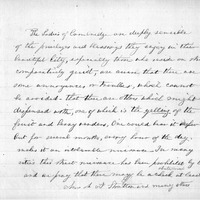 The Ladies of Cambridge are deeply sensible
of the privileges and blessings they enjoy in their
beautiful City, especially those who reside on
comparatively quiet, are aware that there are
some annoyances or troubles, which cannot
be avoided. But there are others which might
dispensed with, one of which is the yelling of the
fruit and berry venders. One could bear it
but for several months, every hour of the day
makes it an intolerable nuisance. In many
cities this street nuisance has been prohibited by
and we pray that there may be a check at least
Mrs. and many others